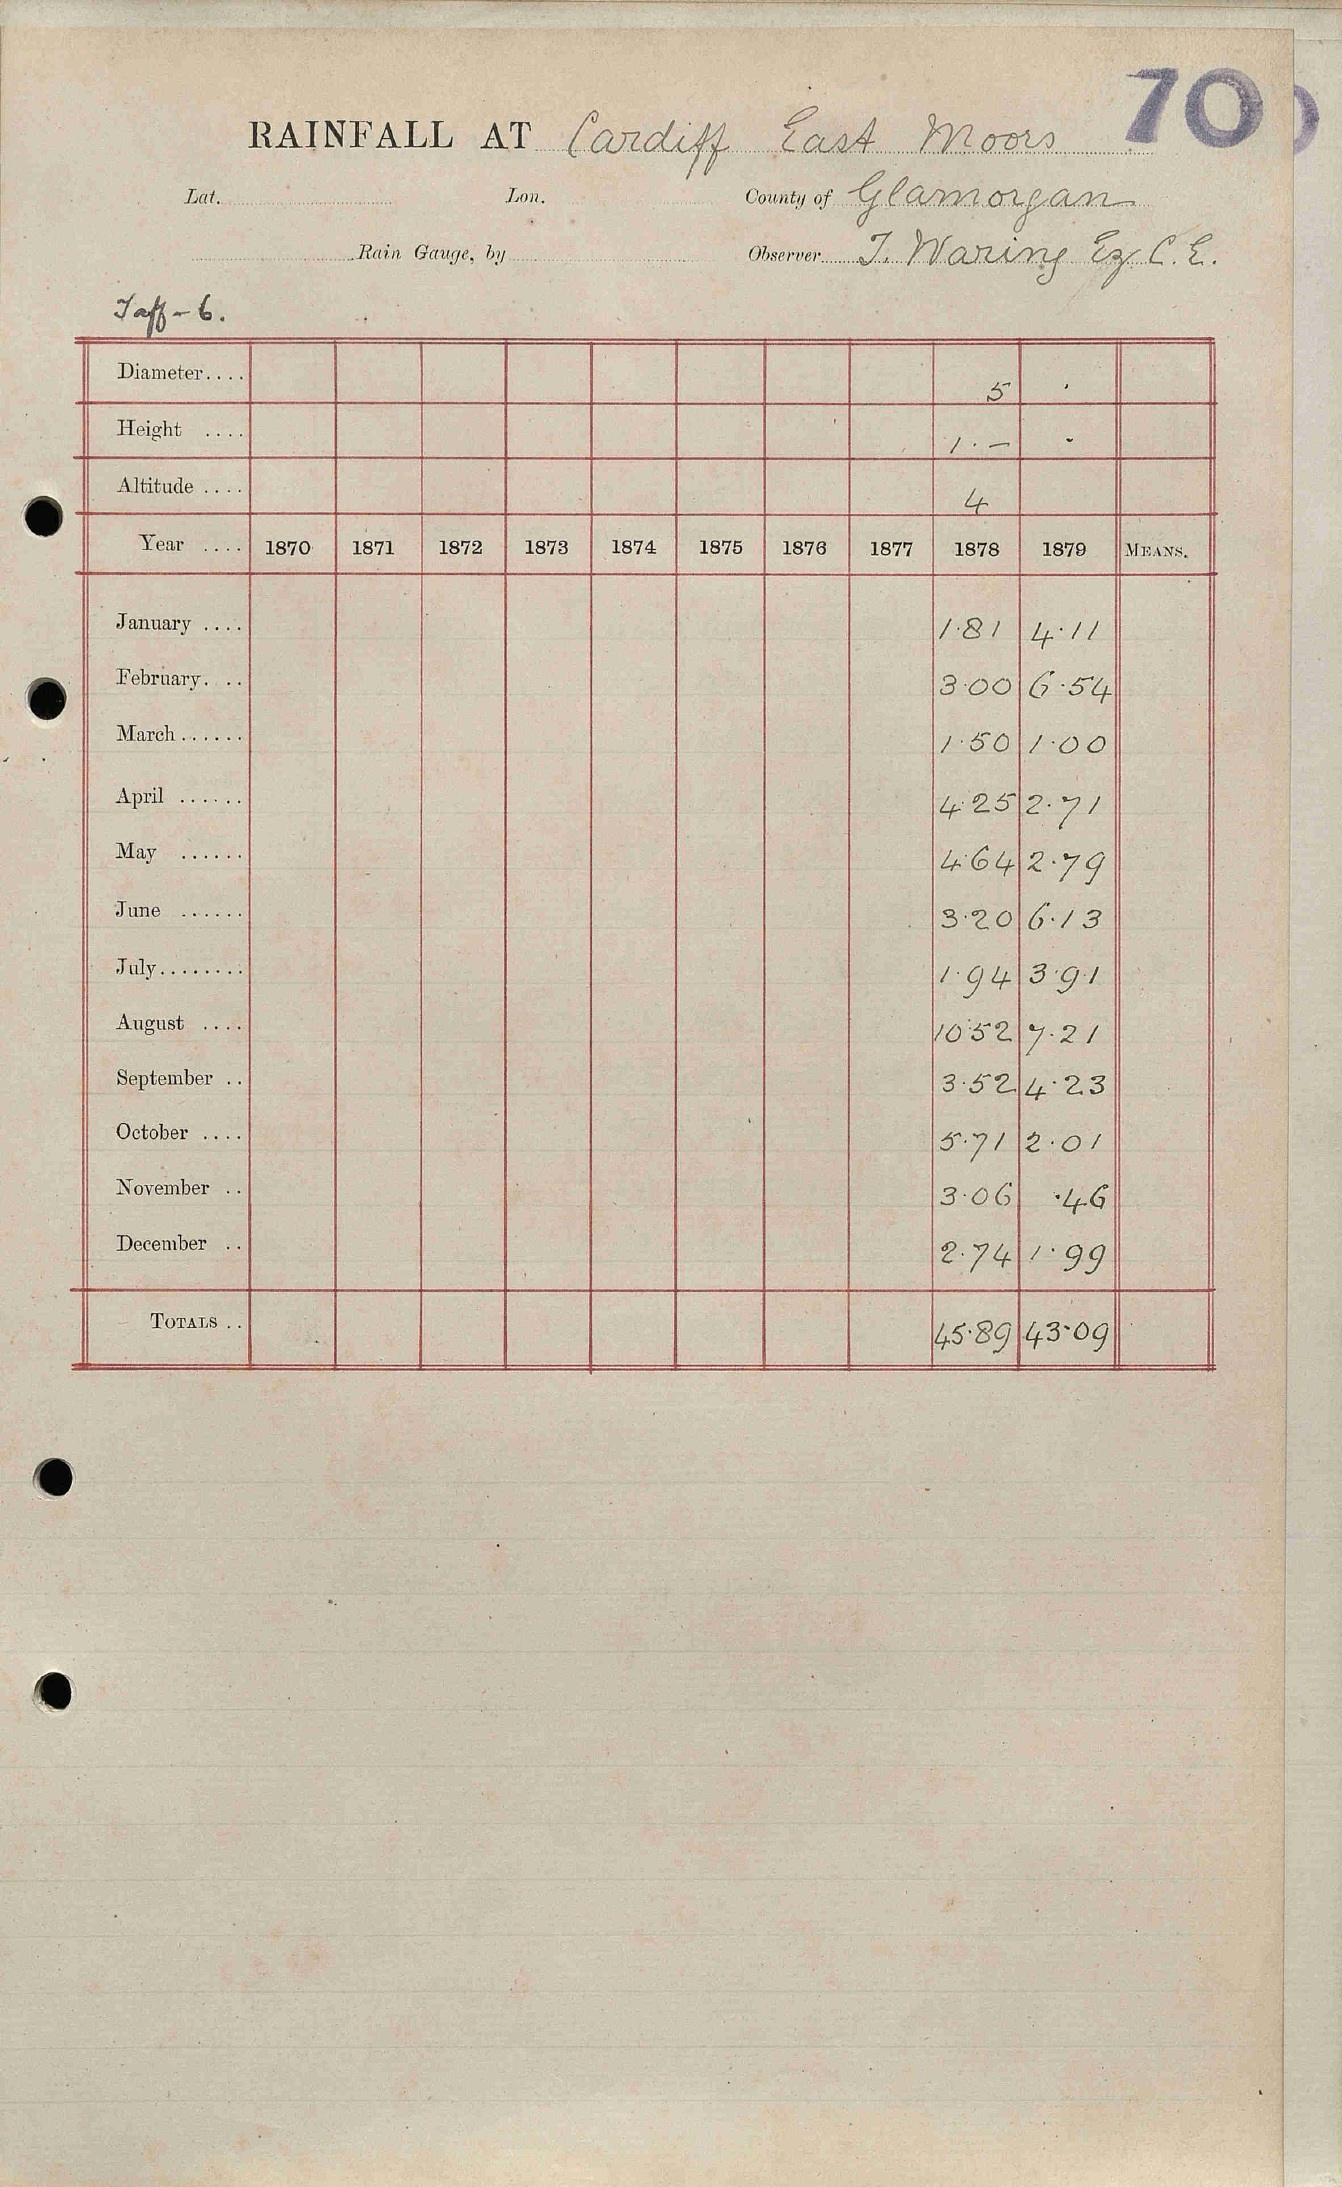 70
RAINFALL AT Cardiff East Moors
Lat. Lon. County of Glamorgan
Rain Gauge, by Observer T. Waring Ez C.E.
Taff - 6.
Diameter.... 5 ·
Height .... 1 · — ·
Altitude .... 4
Year .... 1870 1871 1872 1873 1874 1875 1876 1877 1878 1879 MEANS.
January .... 1·81 4·11
February. .. 3·00 6·54
March...... 1·50 1·00
April ...... 4·25 2·71
May ...... 4·64 2·79
June ...... 3·20 6·13
July........ 1·94 3·91
August .... 10·52 7·21
September .. 3·52 4·23
October .... 5·71 2·01
November .. 3·06 ·46
December .. 2·74 1·99
TOTALS .. 45·89 43·09